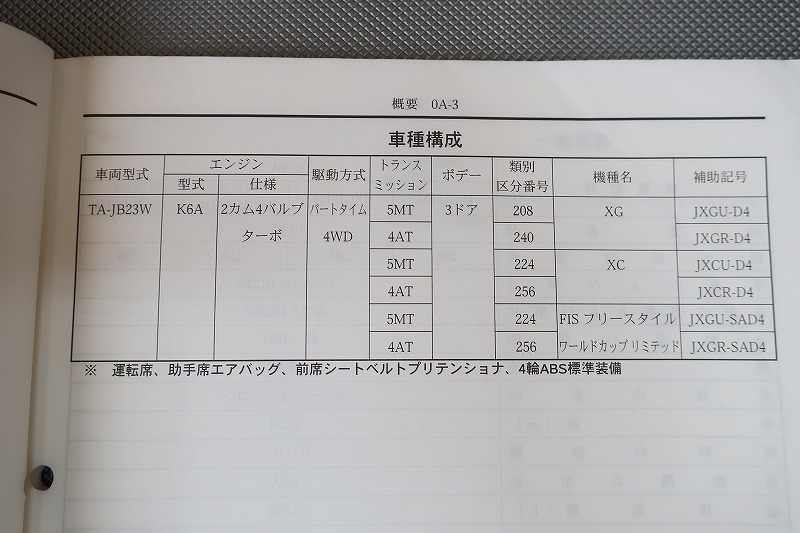 概要 0A-3
車種構成
車両型式 エンジン 駆動方式 トランスミッション ボデー 類別区分番号 機種名 補助記号
型式 仕様
TA-JB23W K6A 2カム4バルブ パートタイム 5MT 3ドア 208 XG JXGU-D4
ターボ 4WD 4AT 240 JXGR-D4
5MT 224 XC JXCU-D4
4AT 256 JXCR-D4
5MT 224 FISフリースタイル JXGU-SAD4
4AT 256 ワールドカップリミテッド JXGR-SAD4
※ 運転席、助手席エアバッグ、前席シートベルトプリテンショナ、4輪ABS標準装備